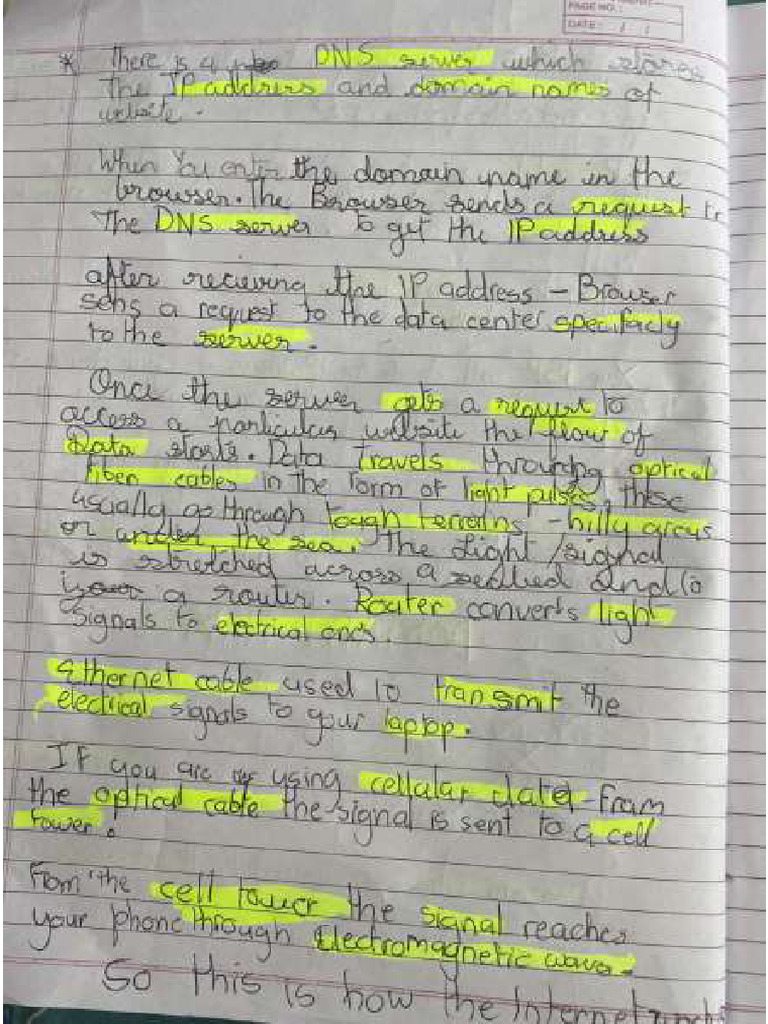 PAGE NO.:
DATE: / /
* There is a DNS server which stores
the IP address and domain names of
website.
When You enter the domain name in the
browser. The Browser sends a request to
the DNS server to get the IP address
after recieving the IP address - Browser
sens a request to the data center specifacly
to the server.
Once the server gets a request to
access a particular website the flow of
Data starts. Data Travels through optical
fiber cables in the form of light pulses, these
usually go through tough terrains - hilly areas
or under the sea. The Light/signal
is stretched across a and to
a router. Router converts light
signals to electrical ones.
Ethernet cable used to transmit the
electrical signals to your laptop.
If you are using cellular data - From
the optical cable the signal is sent to a cell
tower.
From the cell tower the signal reaches
your phone through Electromagnetic wave.
So this is how the Internet